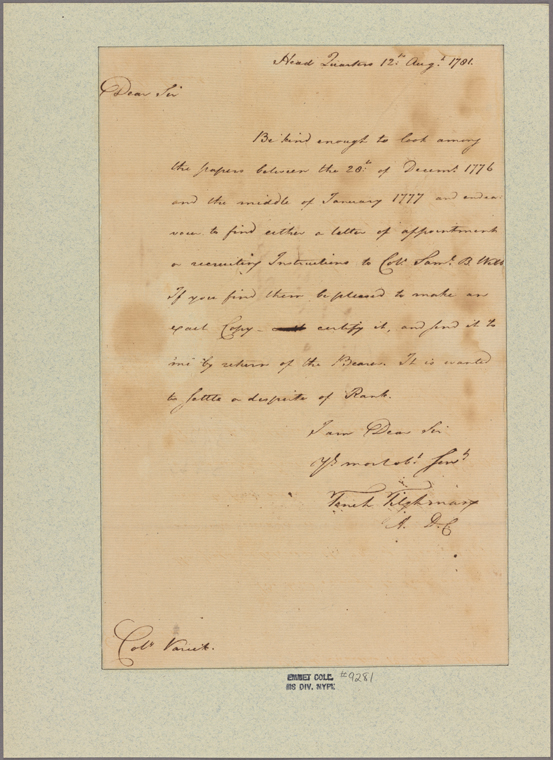 Head Quarters 12th Augt 1781.
Dear Sir
Be kind enough to look among
the papers between the 20th of Decemr 1776
and the middle of January 1777 and endea
vour to find either a letter of appointment
or recruiting Instructions to Colo Saml B Webb
If you find them be pleased to make an
exact Copy - certify it, and send it to
me by return of the Bearer. It is wanted
to settle a despute of Rank.
I am Dear Sir
Yr most obt Servt
Tench Tilghman
A. D. C
Colo Varick.
EMMET COLL. 9281
MS DIV. NYPL